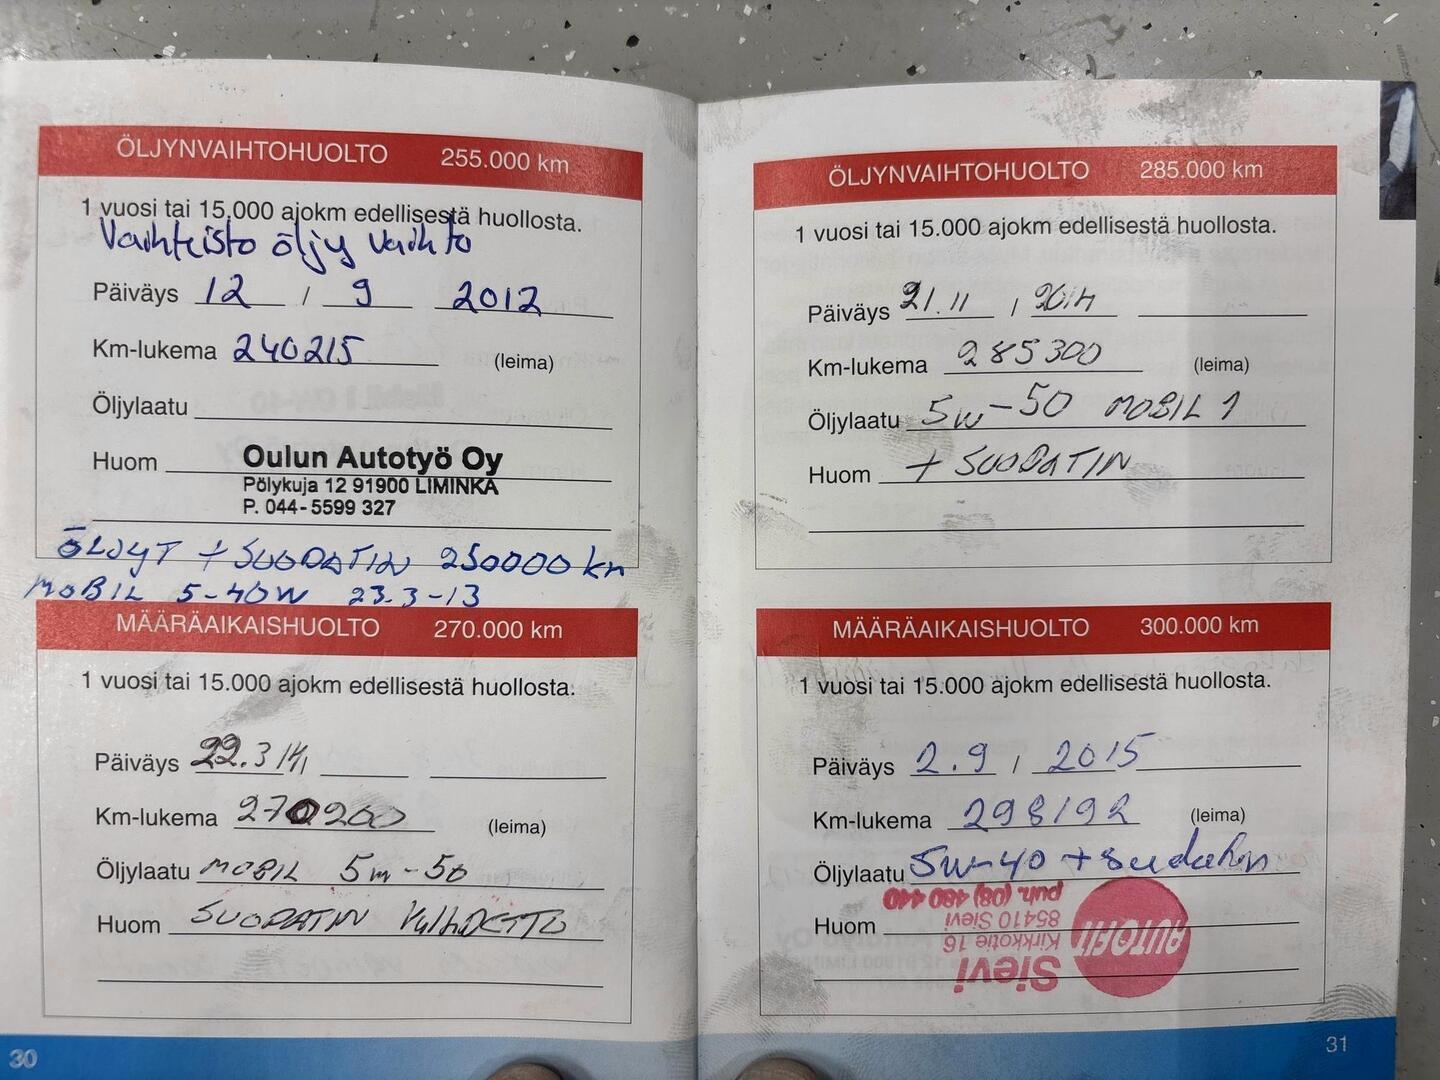 ÖLJYNVAIHTOHUOLTO 255.000 km
1 vuosi tai 15.000 ajokm edellisestä huollosta.
Vaihteisto öljy vaihto
Päiväys 12 / 9 2012
Km-lukema 240215 (leima)
Öljylaatu
Huom Oulun Autotyö Oy
Pölykuja 12 91900 LIMINKA
P. 044-5599 327
ÖLJYT + SUODATIN 250000 km
MOBIL 5-40W 23.3-13
MÄÄRÄAIKAISHUOLTO 270.000 km
1 vuosi tai 15.000 ajokm edellisestä huollosta.
Päiväys 22.3 14 /
Km-lukema 270200 (leima)
Öljylaatu MOBIL 5W-50
Huom SUODATIN VAIHDETTU
30
ÖLJYNVAIHTOHUOLTO 285.000 km
1 vuosi tai 15.000 ajokm edellisestä huollosta.
Päiväys 21.11 / 2014
Km-lukema 285300 (leima)
Öljylaatu 5W-50 MOBIL 1
Huom + SUODATIN
MÄÄRÄAIKAISHUOLTO 300.000 km
1 vuosi tai 15.000 ajokm edellisestä huollosta.
Päiväys 2.9 / 2015
Km-lukema 298192 (leima)
Öljylaatu 5W-40 + suodatin
Huom
AUTOFIT Sievi
Kirkkotie 16
85410 Sievi
puh. (08) 480 440
31